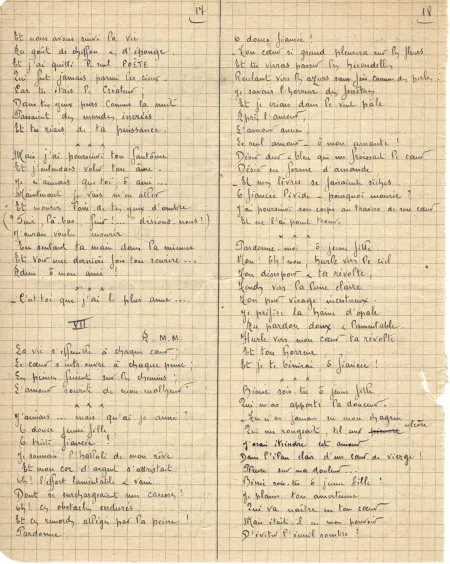 17
Et nous avons suivi la vie
Au goût de chiffon & d'éponge.
Et j'ai quitté le seul POÈTE
Qui fut jamais parmi les cieux.
Car tu étais le Créateur ;
Dans tes yeux purs comme la nuit
Passaient des mondes incréés
Et tu riais de ta puissance.
^ ^ ^
Mais j'ai poursuivi ton fantôme
Et j'entendais voler ton âme.
Je n'aimais que toi ô ami ...
Maintenant je vais m'en aller
Et mourir loin de tes yeux d'ombre
("Fuir là-bas, fuir!..." disions-nous!)
J'aurais voulu mourir
En sentant ta main dans la mienne
Et voir une dernière fois ton sourire ...
Adieu ô mon ami
^ ^ ^
- C'est toi que j'ai le plus aimé ...
VII
R. M.M.
La vie s'effeuille à chaque cœur ;
Le cœur s'entr'ouvre à chaque peine ;
En peines fusent sur le chemin
L'amour sourit de mon malheur
^ ^ ^
J'aimais ... mais qu'ai je aimé ?
Ô douce jeune fille
Ô triste fiancée !
Je sonnais l'hallali de mon rêve
Et mon cor d'argent s'attristait
Oh! l'effort lamentable & vain
Dont se surchargeaient mes caresses!
Oh! ces obstacles endurés
Et ces remords allégés par la peine !
Pardonne
18
Ô douce fiancée !
Ton cœur si grand pleurera sur les fleurs
Et tu verras passer les hirondelles
Roulant vers les azurs sans fin comme des perles.
Je savais l'horreur des fenêtres
Et je criais dans le vent pâle
Après l'amour,
L'amour aussi
Le seul amour - ô mon amante !
Désir dur & bleu qui me froissait le cœur
Désir en forme d'amande
- Et mes livres se fanaient séchés -
Ô fiancée livide - pourquoi mourir ?
J'ai poursuivi son corps au travers de son cœur
Et ne l'ai point trouvé.
^ ^ ^
Pardonne-moi ô jeune fille
Non ! Oh ! non hurle vers le ciel
Ton désespoir & ta révolte,
Tends vers la lune claire
Ton pur visage incestueux
Je préfère la haine d'opale
Au pardon doux & lamentable.
Hurle vers mon cœur ta révolte
Et ton horreur
Et je te bénirai ô fiancée !
^ ^ ^
Bénie sois-tu ô jeune fille
Qui m'as apporté la douceur.
Tu n'as jamais su mon chagrin
Qui me rongeait, tel un ulcère
J'osai étreindre cet amour
Dans l'élan clair d'un cœur de vierge !
Pleure sur ma douleur ...
Bénie sois-tu ô jeune fille !
Je plains ton amertume
Qui va naître en ton cœur
Mais était-il en mon pouvoir
D'éviter l'ennui sombre ?